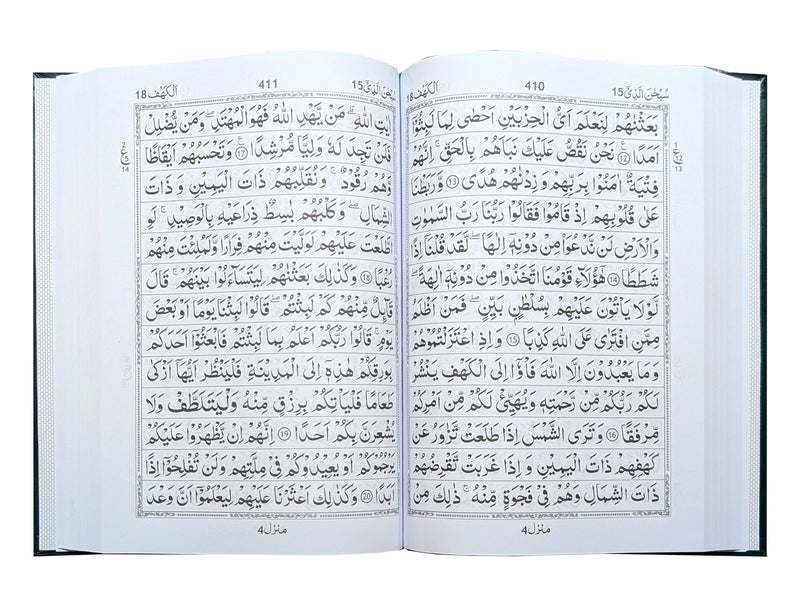 سُبْحٰنَ الَّذِیْۤ 15
410
اَلْكَهْف 18
بَعَثْنٰهُمْ لِنَعْلَمَ اَیُّ الْحِزْبَیْنِ اَحْصٰی لِمَا لَبِثُوْۤا
اَمَدًا ۧ ۝12 نَحْنُ نَقُصُّ عَلَیْكَ نَبَاَهُمْ بِالْحَقِّ ؕ اِنَّهُمْ
فِتْیَةٌ اٰمَنُوْا بِرَبِّهِمْ وَ زِدْنٰهُمْ هُدًی ۝13 وَّ رَبَطْنَا
عَلٰی قُلُوْبِهِمْ اِذْ قَامُوْا فَقَالُوْا رَبُّنَا رَبُّ السَّمٰوٰتِ
وَ الْاَرْضِ لَنْ نَّدْعُوَاۡ مِنْ دُوْنِهٖۤ اِلٰهًا لَّقَدْ قُلْنَاۤ اِذًا
شَطَطًا ۝14 هٰۤؤُلَآءِ قَوْمُنَا اتَّخَذُوْا مِنْ دُوْنِهٖۤ اٰلِهَةً ؕ
لَوْ لَا یَاْتُوْنَ عَلَیْهِمْ بِسُلْطٰنٍۭ بَیِّنٍ ؕ فَمَنْ اَظْلَمُ
مِمَّنِ افْتَرٰی عَلَی اللّٰهِ كَذِبًا ؕ ۝15 وَ اِذِ اعْتَزَلْتُمُوْهُمْ
وَ مَا یَعْبُدُوْنَ اِلَّا اللّٰهَ فَاْوٗۤا اِلَی الْكَهْفِ یَنْشُرْ
لَكُمْ رَبُّكُمْ مِّنْ رَّحْمَتِهٖ وَ یُهَیِّئْ لَكُمْ مِّنْ اَمْرِكُمْ
مِّرْفَقًا ۝16 وَ تَرَی الشَّمْسَ اِذَا طَلَعَتْ تَّزٰوَرُ عَنْ
كَهْفِهِمْ ذَاتَ الْیَمِیْنِ وَ اِذَا غَرَبَتْ تَّقْرِضُهُمْ
ذَاتَ الشِّمَالِ وَ هُمْ فِیْ فَجْوَةٍ مِّنْهُ ؕ ذٰلِكَ مِنْ
1 ع 12 13
منزل 4
سُبْحٰنَ الَّذِیْۤ 15
411
اَلْكَهْف 18
اٰیٰتِ اللّٰهِ ؕ مَنْ یَّهْدِ اللّٰهُ فَهُوَ الْمُهْتَدِ ۚ وَ مَنْ یُّضْلِلْ
فَلَنْ تَجِدَ لَهٗ وَلِیًّا مُّرْشِدًا ۧ ۝17 وَ تَحْسَبُهُمْ اَیْقَاظًا
وَّ هُمْ رُقُوْدٌ ۖ وَّ نُقَلِّبُهُمْ ذَاتَ الْیَمِیْنِ وَ ذَاتَ
الشِّمَالِ ۖ وَ كَلْبُهُمْ بَاسِطٌ ذِرَاعَیْهِ بِالْوَصِیْدِ ؕ لَوِ
اطَّلَعْتَ عَلَیْهِمْ لَوَلَّیْتَ مِنْهُمْ فِرَارًا وَّ لَمُلِئْتَ مِنْهُمْ
رُعْبًا ۝18 وَ كَذٰلِكَ بَعَثْنٰهُمْ لِیَتَسَآءَلُوْا بَیْنَهُمْ ؕ قَالَ
قَآىِٕلٌ مِّنْهُمْ كَمْ لَبِثْتُمْ ؕ قَالُوْا لَبِثْنَا یَوْمًا اَوْ بَعْضَ
یَوْمٍ ؕ قَالُوْا رَبُّكُمْ اَعْلَمُ بِمَا لَبِثْتُمْ فَابْعَثُوْۤا اَحَدَكُمْ
بِوَرِقِكُمْ هٰذِهٖۤ اِلَی الْمَدِیْنَةِ فَلْیَنْظُرْ اَیُّهَاۤ اَزْكٰی
طَعَامًا فَلْیَاْتِكُمْ بِرِزْقٍ مِّنْهُ وَلْیَتَلَطَّفْ وَ لَا
یُشْعِرَنَّ بِكُمْ اَحَدًا ۝19 اِنَّهُمْ اِنْ یَّظْهَرُوْا عَلَیْكُمْ
یَرْجُمُوْكُمْ اَوْ یُعِیْدُوْكُمْ فِیْ مِلَّتِهِمْ وَ لَنْ تُفْلِحُوْۤا اِذًا
اَبَدًا ۝20 وَ كَذٰلِكَ اَعْثَرْنَا عَلَیْهِمْ لِیَعْلَمُوْۤا اَنَّ وَعْدَ
2 ع 5 14
منزل 4